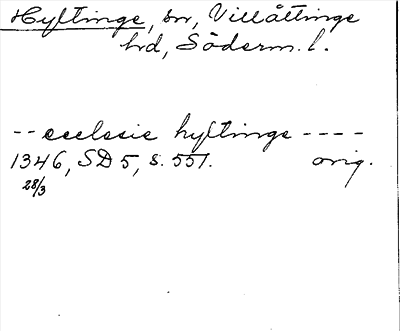 Hyltinge, sn, Villåttinge
hrd, Söderm. l.
-- ecclesie hyltinge ----
1346, SD 5, s. 551. orig.
28/3